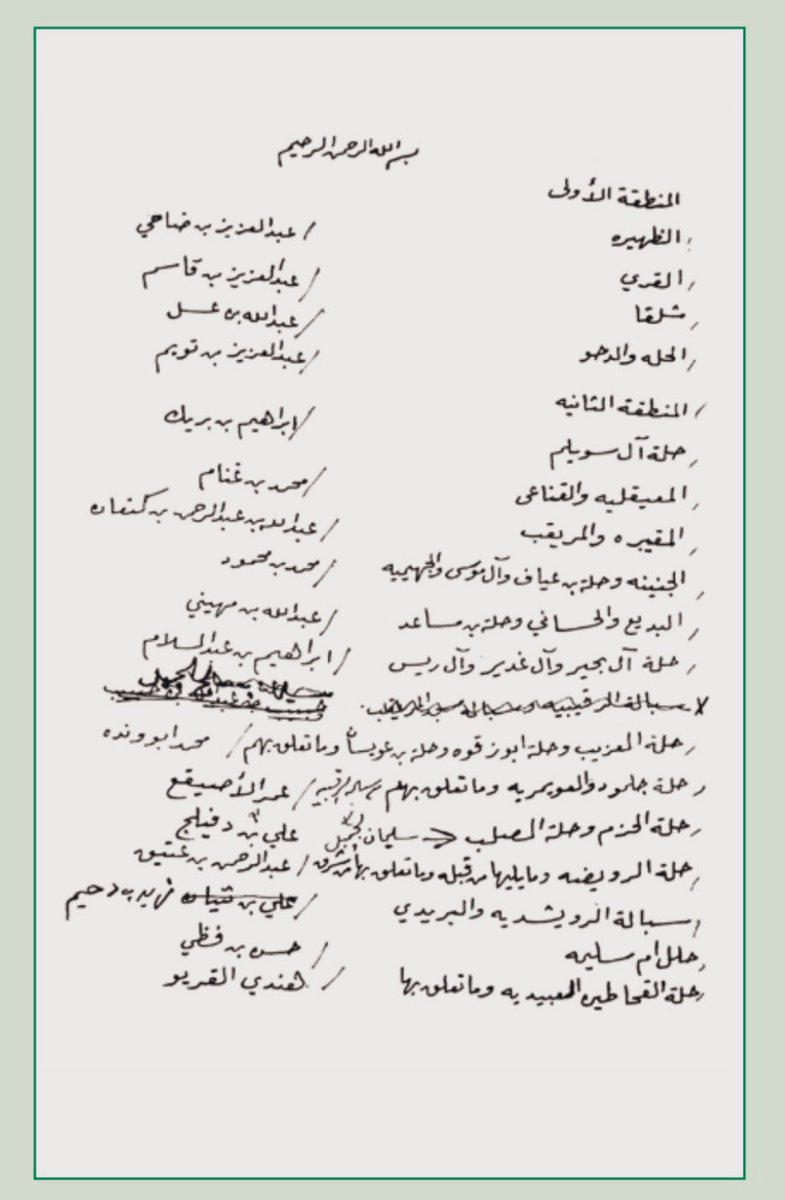 بسم الله الرحمن الرحيم
المنطقة الأولى
الظهيره / عبدالعزيز بن ضاحي
القري / عبدالعزيز بن قاسم
شلقا / عبدالله بن عسل
الحله والدحو / عبدالعزيز بن تويم
المنطقة الثانيه
حلة آل سويلم / ابراهيم بن بريك
المعيقليه والقناعى / محمد بن غنام
المقيبره والمريقب / عبدالله بن عبدالرحمن بن كنعان
الجنينه وحلة بن عياف وآل موسى والجهيميه / محمد بن محمود
البديع والحساني وحلة بن مساعد / عبدالله بن مهيني
حلة آل بحير وآل غدير وآل ريس / ابراهيم بن عبدالسلام
سبالة الرقيبيه
حلة العزيب وحلة ابوز قوه وحلة بن عويسأ وما تعلق بهم / محمد ابو ونده
حلة جلمود والعويمريه وما تعلق بهم / عمر الأصيقع
حلة الحزم وحلة المصلب سليمان علي بن دفيلج
حلة الرويضه ومايليها من قبله وما تعلق بها من شرق / عبدالرحمن بن عتيق
سبالة الرويشديه والبريدي / علي بن ثنيان فهيد بن دحيم
حلل ام سليمه / حسن بن فظي
حلة القحاطين العبيديه وما تعلق بها / هندي القريو